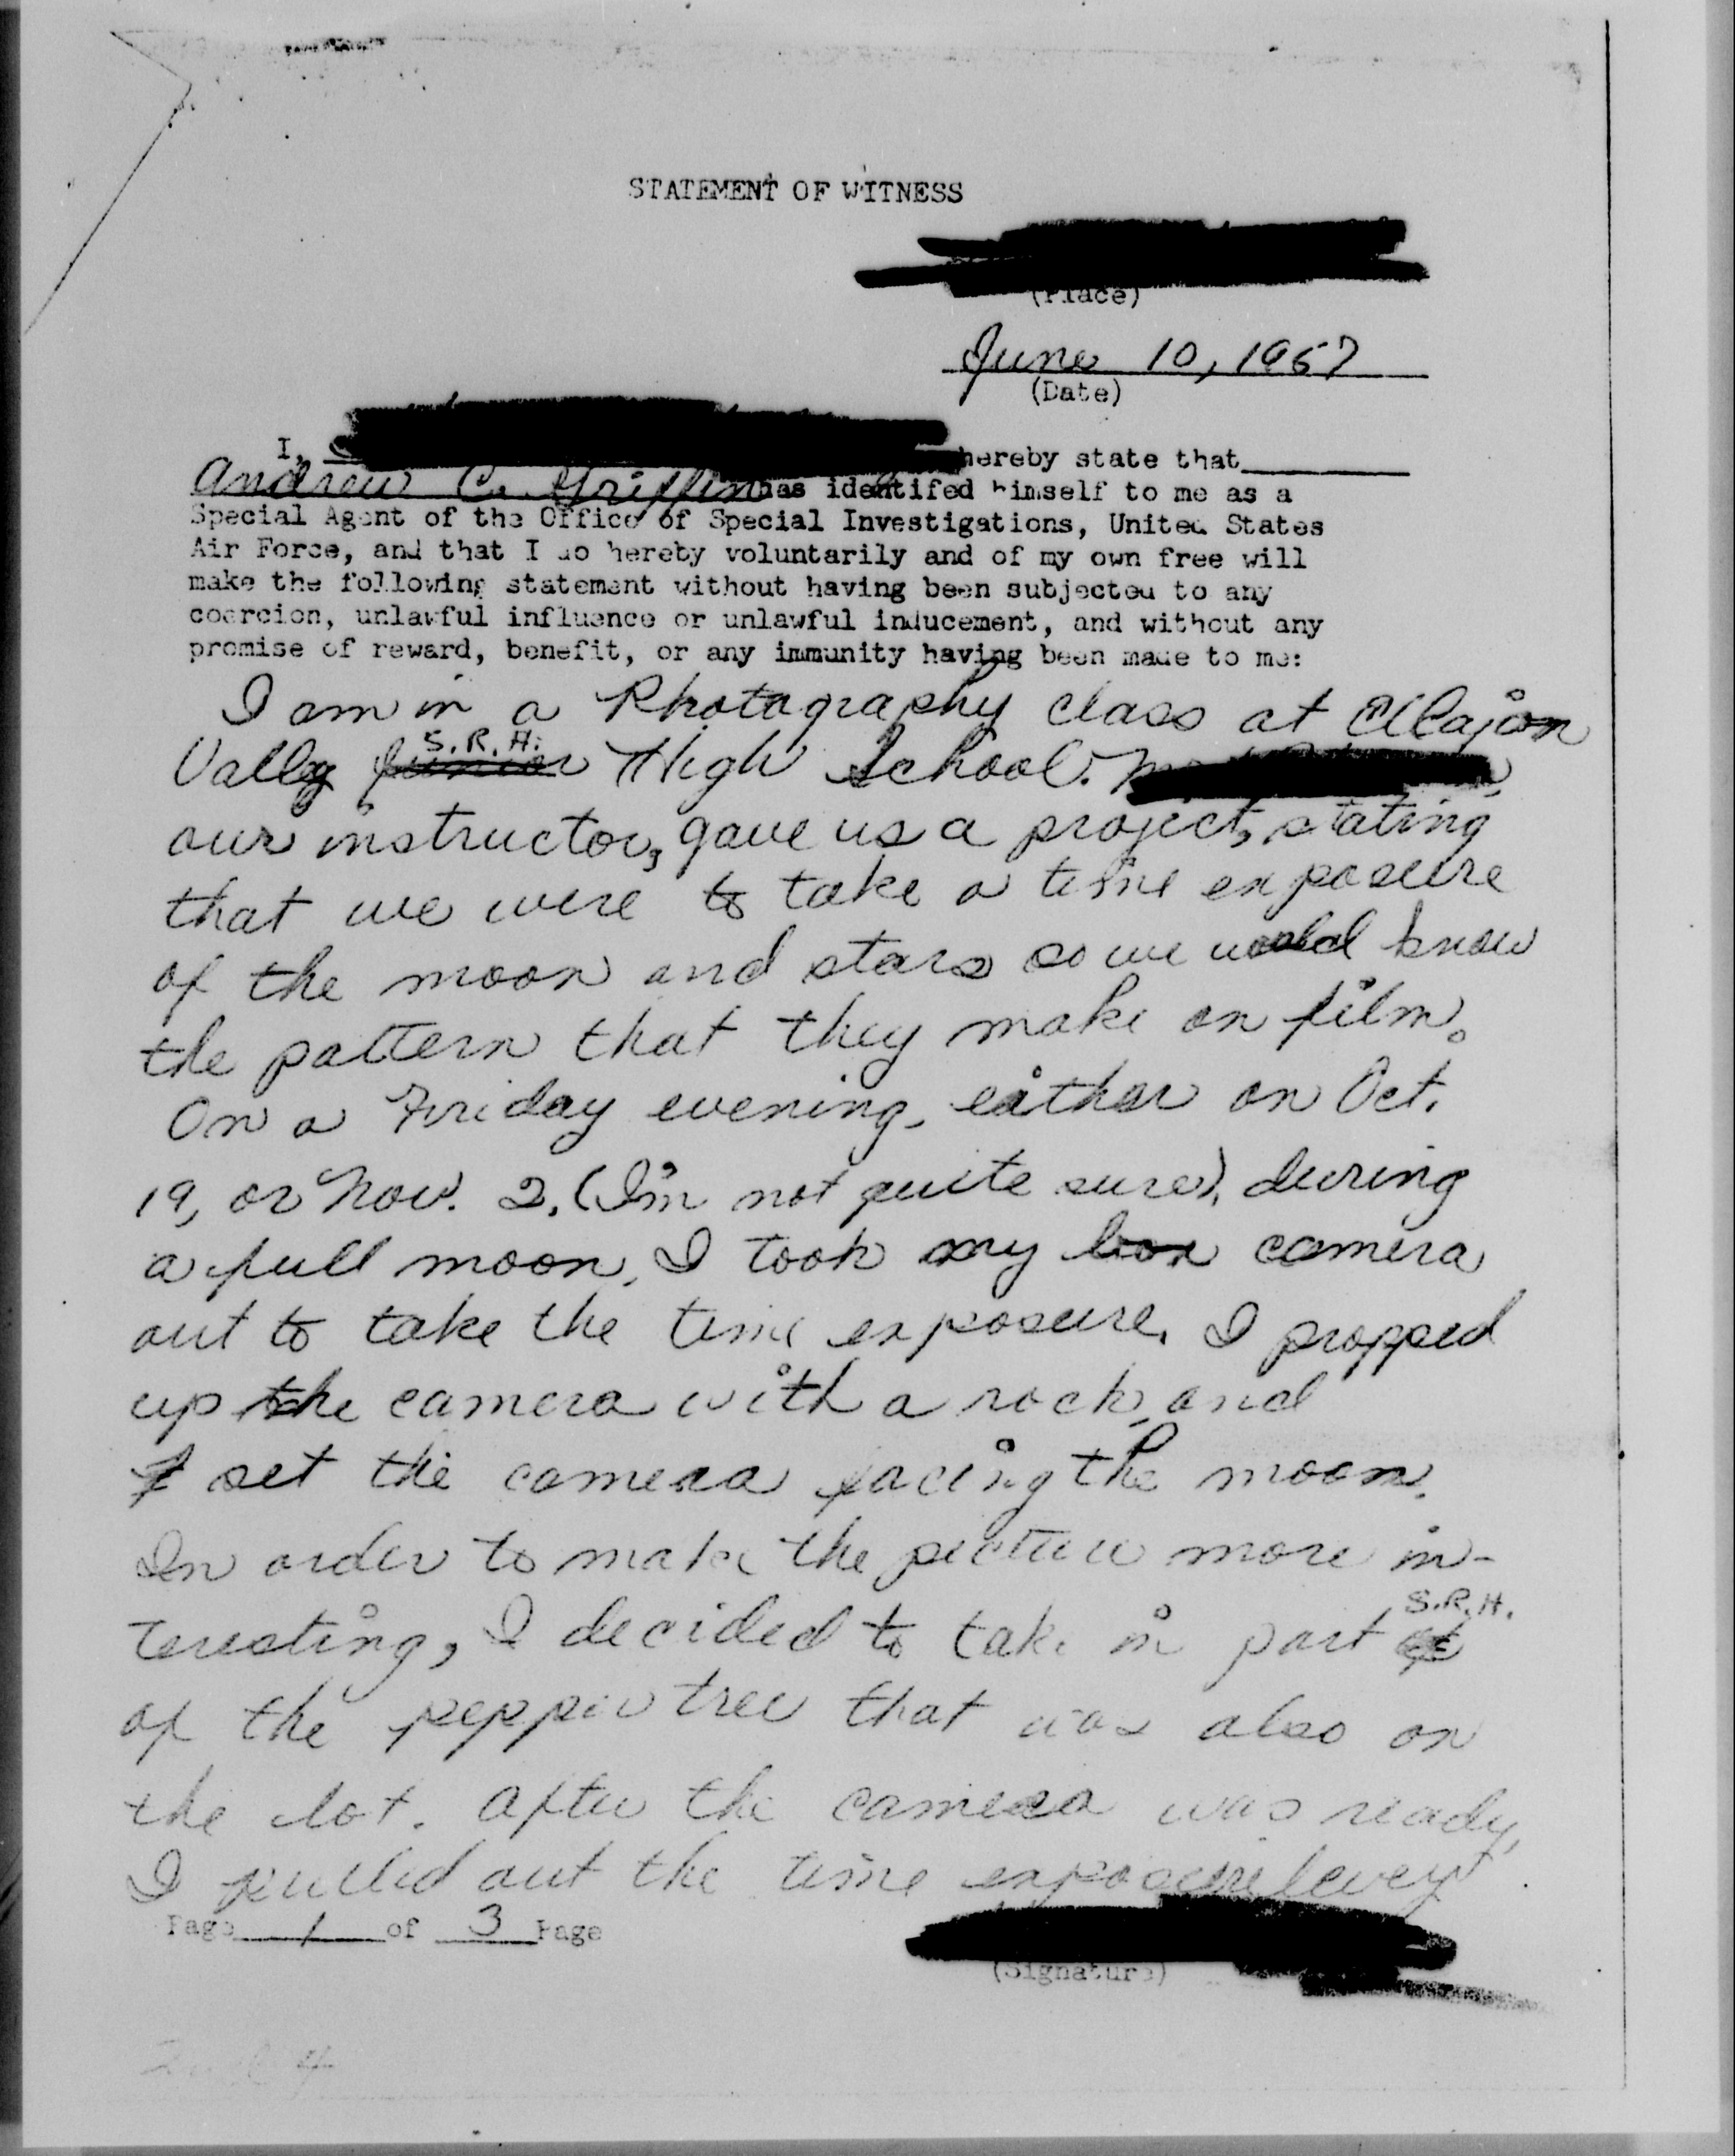 STATEMENT OF WITNESS
(Place)
June 10, 1957
(Date)
I, hereby state that
Andrew C. Griffin has identifed himself to me as a
Special Agent of the Office of Special Investigations, United States
Air Force, and that I do hereby voluntarily and of my own free will
make the following statement without having been subjected to any
coercion, unlawful influence or unlawful inducement, and without any
promise of reward, benefit, or any immunity having been made to me:
I am in a Photography class at El Cajon
S.R.H.
Vally Junior High School.
our instructor, gave us a project, stating
that we were to take a time exposure
of the moon and stars so we would know
the pattern that they make on film.
On a Friday evening, either on Oct.
19, or Nov. 2, (I'm not quite sure), during
a full moon, I took my box camera
out to take the time exposure. I propped
up the camera with a rock, and
I set the camera facing the moon.
In order to make the picture more in-
S.R.H.
teresting, I decided to take in part of
of the pepper tree that was also on
the lot. After the camera was ready,
I pulled out the time exposure lever
Page 1 of 3 Page
(Signature)